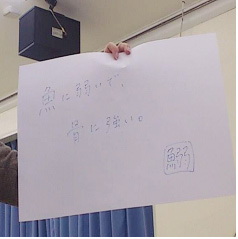 魚に弱いで、
骨に強い。
鰯